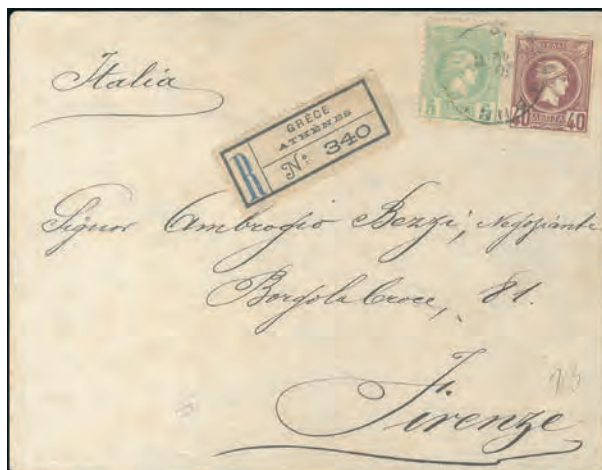 Italia
R
GRÈCE
ATHÈNES
No: 340
5 5
40 40
Signor Ambrogio Bezzi, Negoziante
Borgo la Croce, 81.
Firenze